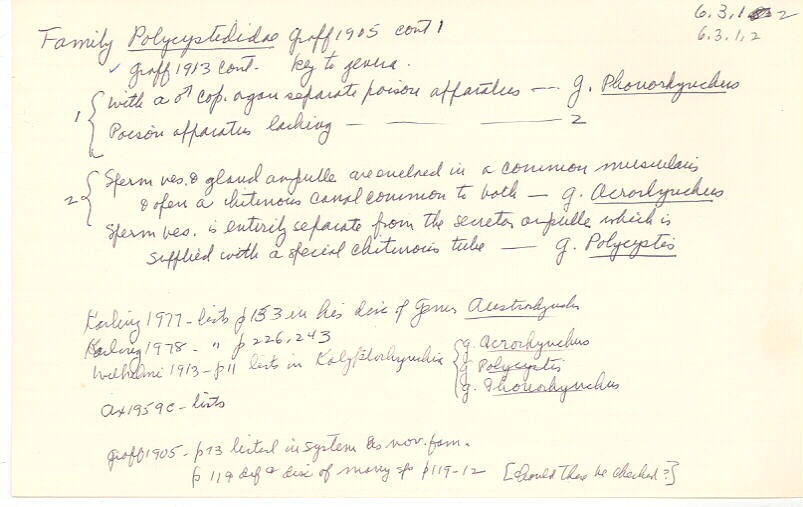 6.3.1 2
6.3.1.2
Family Polycystididae Graff 1905 cont 1
✓ Graff 1913 cont. Key to genera.
1 { With a ♂ cop. organ separate poison apparatus — g. Phonorhynchus
Poison apparatus lacking — — — 2
2 { Sperm ves. & gland ampulle are enclosed in a common muscularis
& open a chitenous canal common to both — g. Acrorhynchus
Sperm ves. is entirely separate from the secretor ampulle which is
supplied with a special chitenous tube — g. Polycystis
Karling 1977 - lists p 153 in his disc of Genus
Karling 1978 - " p 226, 243
Wilhelmi 1913 - p 11 lists in Kalyptorhynchia { g. Acrorhynchus
g. Polycystis
g. Phonorhynchus
Ax 1959c - lists
Graff 1905 - p 73 listed in System as nov. fam.
p 119 def & disc of many sp p 119-12 [should these be checked?]